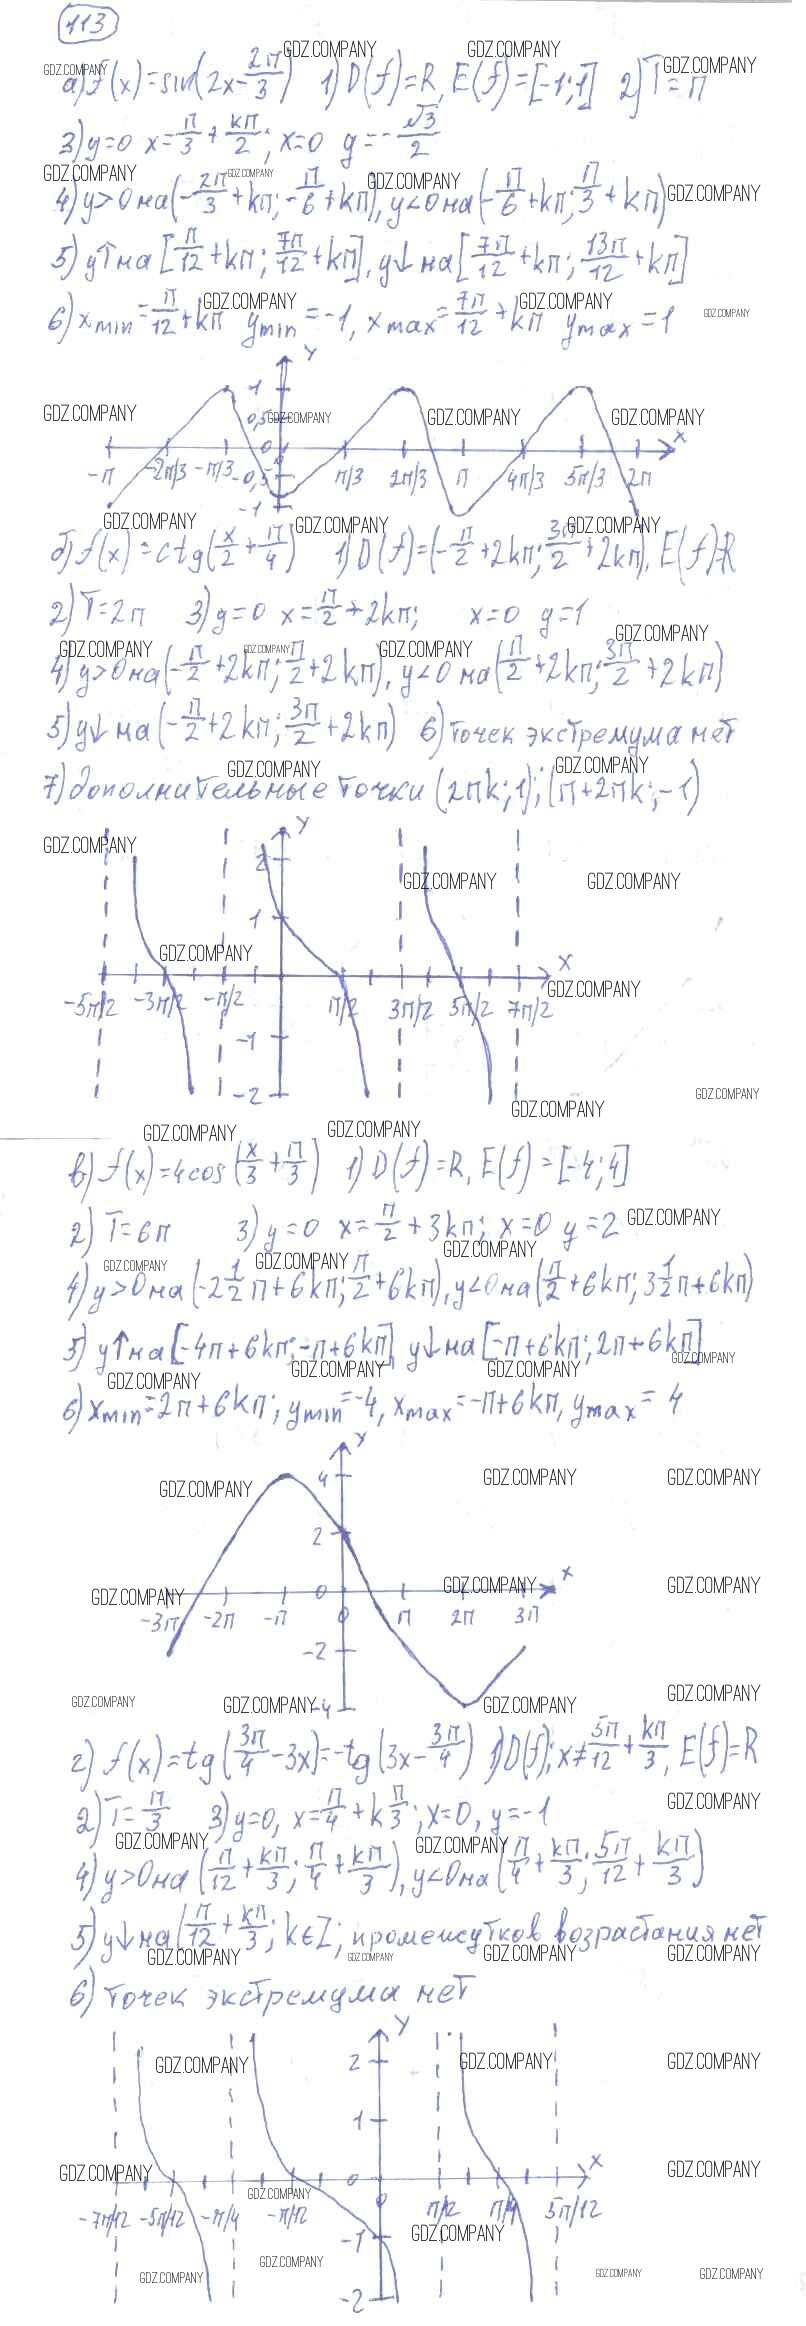 113
а) f(x)=sin(2x-2π/3) 1) D(f)=R, E(f)=[-1;1] 2) T=π
3) y=0 x=π/3+kπ/2; x=0 y=-√3/2
4) y>0 на (-2π/3+kπ; -π/6+kπ), y<0 на (-π/6+kπ; π/3+kπ)
5) y↑ на [π/12+kπ; 7π/12+kπ], y↓ на [7π/12+kπ; 13π/12+kπ]
6) xmin=π/12+kπ ymin=-1, xmax=7π/12+kπ ymax=1
y
1
0,5
0
-π -2π/3 -π/3 -0,5 π/3 2π/3 π 4π/3 5π/3 2π x
-1
б) f(x)=ctg(x/2+π/4) 1) D(f)=(-π/2+2kπ; 3π/2+2kπ), E(f)=R
2) T=2π 3) y=0 x=π/2+2kπ; x=0 y=1
4) y>0 на (-π/2+2kπ; π/2+2kπ), y<0 на (π/2+2kπ; 3π/2+2kπ)
5) y↓ на (-π/2+2kπ; 3π/2+2kπ) 6) точек экстремума нет
7) дополнительные точки (2πk; 1); (π+2πk; -1)
y
2
1
x
-5π/2 -3π/2 -π/2 π/2 3π/2 5π/2 7π/2
-1
-2
в) f(x)=4cos(x/3+π/3) 1) D(f)=R, E(f)=[-4;4]
2) T=6π 3) y=0 x=π/2+3kπ; x=0 y=2
4) y>0 на (-2 1/2 π+6kπ; π/2+6kπ), y<0 на (π/2+6kπ; 3 1/2 π+6kπ)
5) y↑ на [-4π+6kπ; -π+6kπ] y↓ на [-π+6kπ; 2π+6kπ]
6) xmin=2π+6kπ; ymin=-4, xmax=-π+6kπ, ymax=4
y
4
2
0 x
-3π -2π -π 0 π 2π 3π
-2
-4
г) f(x)=tg(3π/4-3x)=-tg(3x-3π/4) 1) D(f); x≠5π/12+kπ/3, E(f)=R
2) T=π/3 3) y=0, x=π/4+kπ/3; x=0, y=-1
4) y>0 на (π/12+kπ/3; π/4+kπ/3), y<0 на (π/4+kπ/3; 5π/12+kπ/3)
5) y↓ на (π/12+kπ/3; k∈Z; промежутков возрастания нет
6) точек экстремума нет
y
2
1
0 x
-7π/12 -5π/12 -π/4 -π/12 0 π/12 π/4 5π/12
-1
-2
GDZ.COMPANY